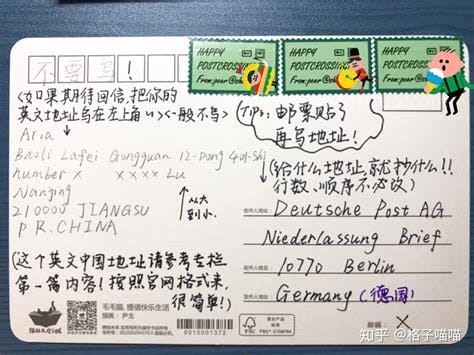 HAPPY
POSTCROSSING
From: poer@
HAPPY
POSTCROSSING
From: poer@
HAPPY
POSTCROSSING
From: poer@
不要写!
(如果期待回信,把你的
英文地址写在左上角 一般不写)
Aria
Baoli Lafei Gongguan 12-Dong 401-Shi
number X XXXX Lu
Nanjing
210000 JIANGSU
P.R.CHINA
从大
到小.
(这个英文中国地址请参考专栏
第一篇内容!按照官网格式来,
很简单!)
(Tips: 邮票贴了
再写地址!
(给什么地址,就抄什么!!
行数、顺序不必改)
收件人地址:
Deutsche Post AG
Niederlassung Brief
10770 Berlin
收件人姓名:
Germany (德国)
毛毛猫,提倡快乐生活
插画:尹戈
9010001372
FSC
FSC® C108744
知乎 @格子喵喵